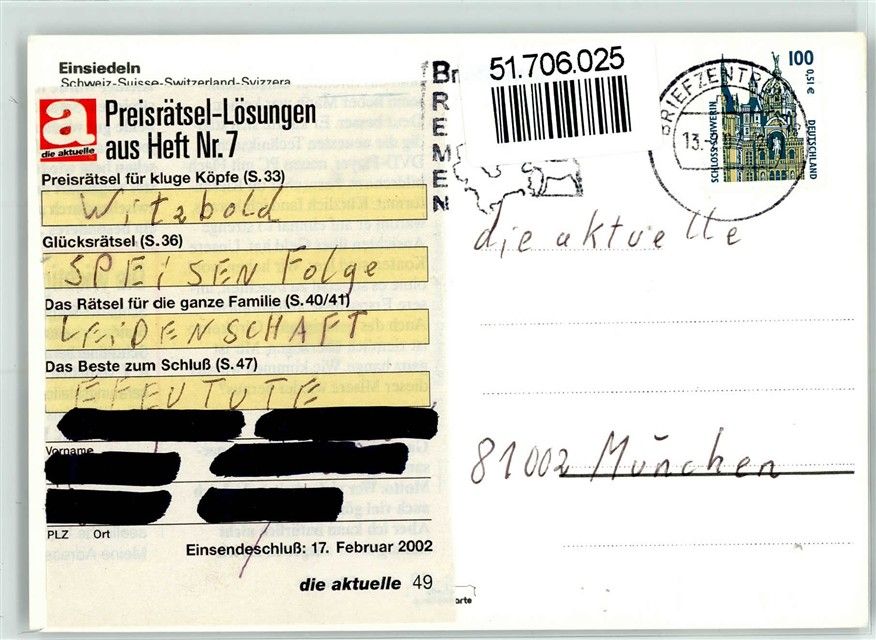 Einsiedeln
Schweiz-Suisse-Switzerland-Svizzera
a
die aktuelle
Preisrätsel-Lösungen
aus Heft Nr. 7
Preisrätsel für kluge Köpfe (S. 33)
Witzbold
Glücksrätsel (S. 36)
SPEiSEN Folge
Das Rätsel für die ganze Familie (S. 40/41)
LEiDENSCHAFT
Das Beste zum Schluß (S. 47)
EFEUTUTE
Vorname
PLZ Ort
Einsendeschluß: 17. Februar 2002
die aktuelle 49
BREMEN
51.706.025
BRIEFZENTRUM
13.
100
0,51 €
SCHLOSS SCHWERIN
DEUTSCHLAND
die aktuelle
81002 München